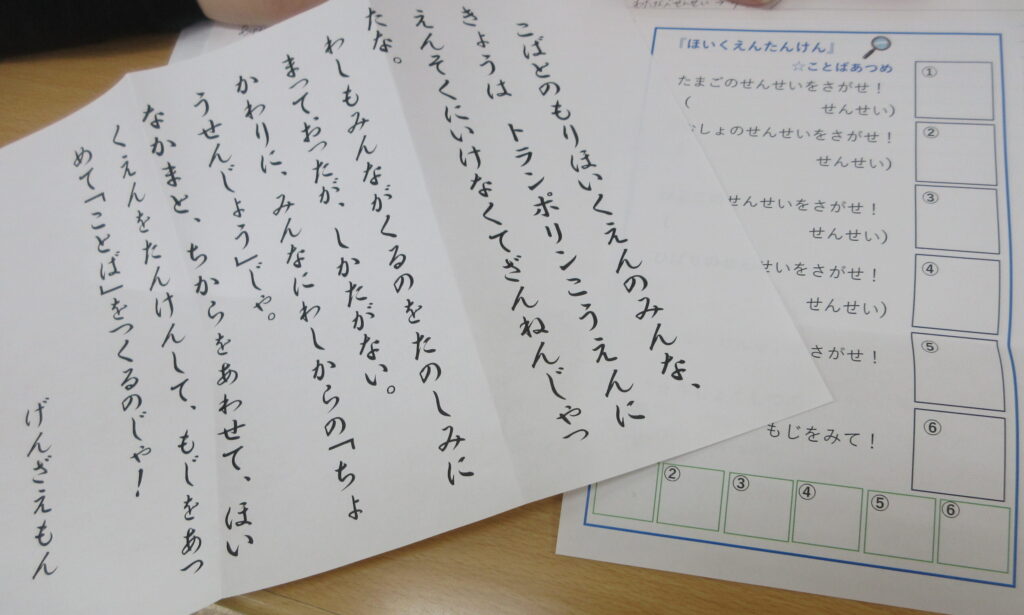 こばとのもりほいくえんのみんな、
きょうは トランポリンこうえんに
えんそくにいけなくてざんねんじゃっ
たな。
わしもみんながくるのをたのしみに
まっておったが、しかたがない。
かわりに、みんなにわしからの「ちょ
うせんじょう」じゃ。
なかまと、ちからをあわせて、ほい
くえんをたんけんして、もじをあつ
めて「ことば」をつくるのじゃ!
げんざえもん
『ほいくえんたんけん』
☆ことばあつめ
たまごのせんせいをさがせ!
( せんせい)
①
しょのせんせいをさがせ!
せんせい)
②
せんせいをさがせ!
せんせい)
③
せいをさがせ!
せんせい)
④
さがせ!
⑤
もじをみて!
⑥
② ③ ④ ⑤ ⑥